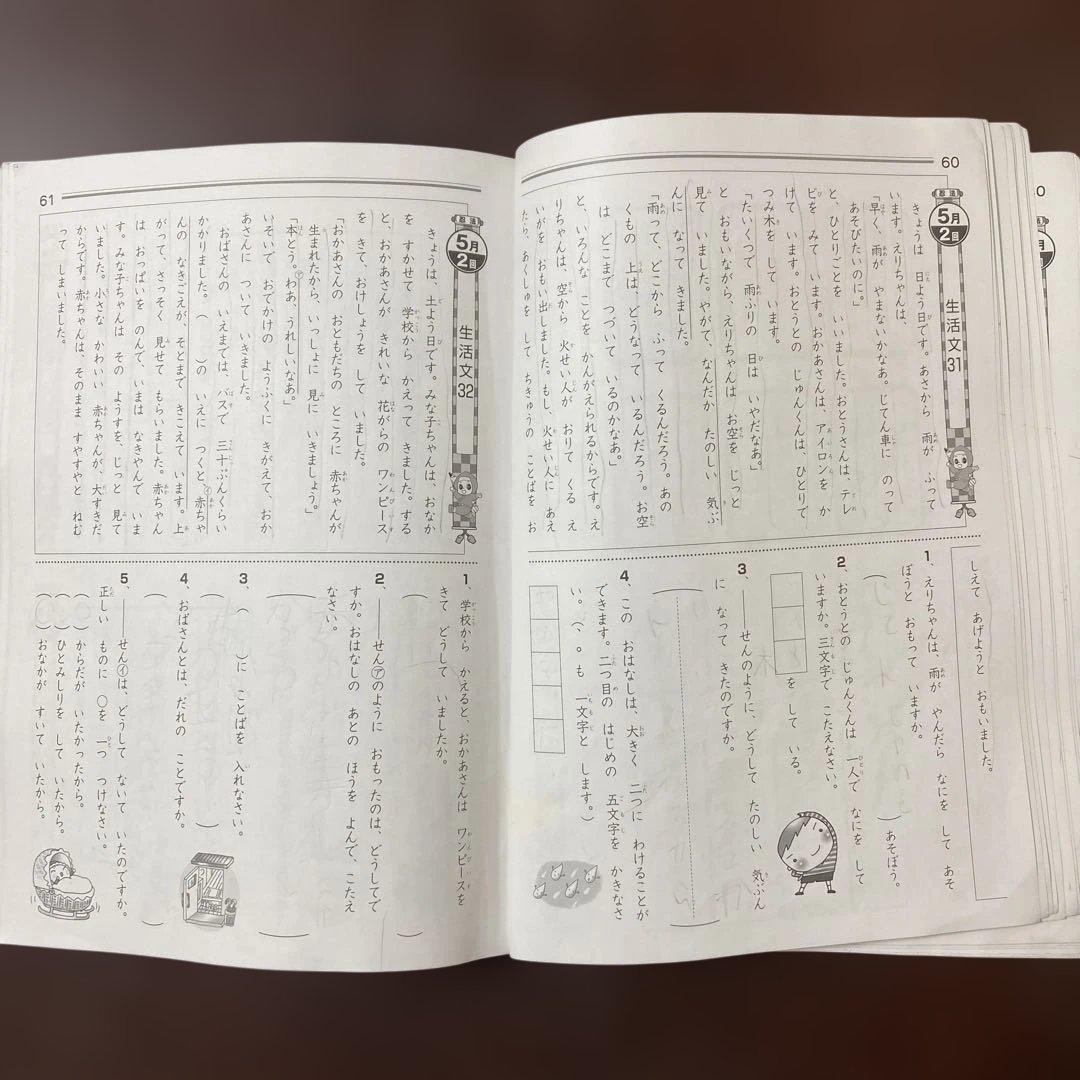 60
忍法
5月
2回
生活文31
きょうは 日よう日です。あさから 雨が ふって
います。えりちゃんは、
「早く、雨が やまないかなあ。じてん車に のって
あそびたいのに。」
と、ひとりごとを いいました。おとうさんは、テレ
ビを みて います。おかあさんは、アイロンを か
けて います。おとうとの じゅんくんは、ひとりで
つみ木を して います。
「たいくつで 雨ふりの 日は いやだなあ。」
と おもいながら、えりちゃんは お空を じっと
見て いました。やがて、なんだか たのしい 気ぶ
んに なって きました。
「雨って、どこから ふって くるんだろう。あの
くもの 上は、どうなって いるんだろう。お空
は どこまで つづいて いるのかなあ。」
と、いろんな ことを かんがえられるからです。え
りちゃんは、空から 火せい人が おりて くる え
いがを おもい出しました。もし、火せい人に あえ
たら、あくしゅを して ちきゅうの ことばを お
しえて あげようと おもいました。
1、えりちゃんは、雨が やんだら なにを して あそ
ぼうと おもって いますか。
( )あそぼう。
2、おとうとの じゅんくんは 一人で なにを して
いますか。三文字で こたえなさい。
を して いる。
3、――せんのように、どうして たのしい 気ぶん
に なって きたのですか。
4、この おはなしは、大きく 二つに わけることが
できます。二つ目の はじめの 五文字を かきなさ
い。(、。も 一文字と します。)
61
忍法
5月
2回
生活文32
きょうは、土よう日です。みな子ちゃんは、おなか
を すかせて 学校から かえって きました。する
と、おかあさんが きれいな 花がらの ワンピース
を きて、おけしょうを して いました。
「おかあさんの おともだちの ところに 赤ちゃんが
生まれたから、いっしょに 見に いきましょう。」
「本とう。わあ、うれしいなあ。」
㋐
いそいで おでかけの ようふくに きがえて、おか
あさんに ついて いきました。
おばさんの いえまでは、バスで 三十ぷんくらい
かかりました。( )の いえに つくと、赤ちゃ
㋑
んの なきごえが、そとまで きこえて います。上
がって、さっそく 見せて もらいました。赤ちゃん
は おっぱいを のんで、いまは なきやんで いま
す。みな子ちゃんは その ようすを、じっと 見て
いました。小さな かわいい 赤ちゃんが、大すきだ
からです。赤ちゃんは、そのまま すやすやと ねむ
って しまいました。
1、学校から かえると、おかあさんは ワンピースを
きて どうして いましたか。
( )
2、――せん㋐のように おもったのは、どうしてで
すか。おはなしの あとの ほうを よんで、こたえ
なさい。
( )
3、( )に ことばを 入れなさい。
( )
4、おばさんとは、だれの ことですか。
( )
5、――せん㋑は、どうして ないて いたのですか。
正しい ものに ○を 一つ つけなさい。
( )からだが いたかったから。
( )ひとみしりを して いたから。
( )おなかが すいて いたから。